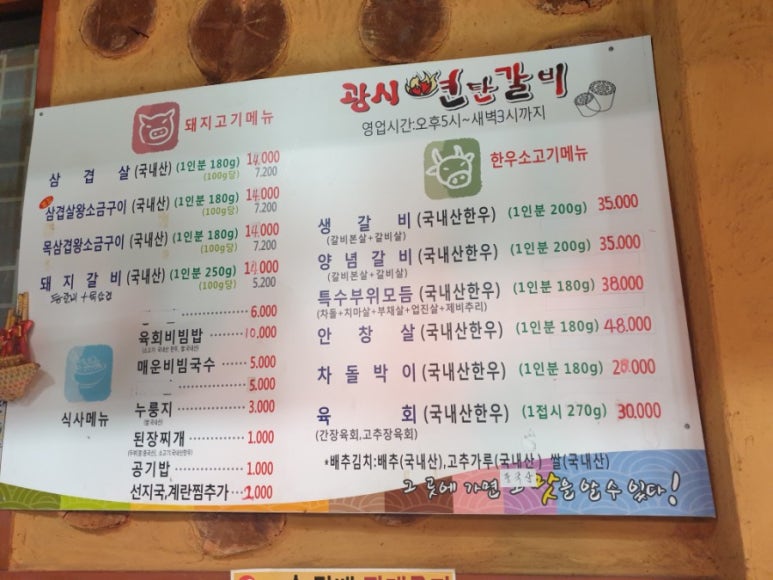 광시 연탄갈비
영업시간:오후5시~새벽3시까지
돼지고기메뉴
삼겹살 (국내산) (1인분 180g) 14,000
(100g당) 7.200
삼겹살왕소금구이 (국내산) (1인분 180g) 14.000
(100g당) 7.200
목삼겹왕소금구이 (국내산) (1인분 180g) 14.000
(100g당) 7.200
돼지갈비 (국내산) (1인분 250g) 14.000
(100g당) 5.200
6.000
육회비빔밥 10.000
매운비빔국수 5.000
5.000
식사메뉴
누룽지 3.000
(쌀:국내산)
된장찌개 1.000
공기밥 1.000
선지국,계란찜추가 2,000
한우소고기메뉴
생갈비 (국내산한우) (1인분 200g) 35.000
(갈비본살+갈비살)
양념갈비 (국내산한우) (1인분 200g) 35.000
(갈비본살+갈비살)
특수부위모듬 (국내산한우) (1인분 180g) 38.000
(차돌+치마살+부채살+업진살+제비추리)
안창살 (국내산한우) (1인분 180g) 48.000
차돌박이 (국내산한우) (1인분 180g) 20.000
육회 (국내산한우) (1접시 270g) 30.000
(간장육회,고추장육회)
*배추김치:배추(국내산),고추가루(국내산) 쌀(국내산)
그 곳에 가면 맛을 알 수 있다!